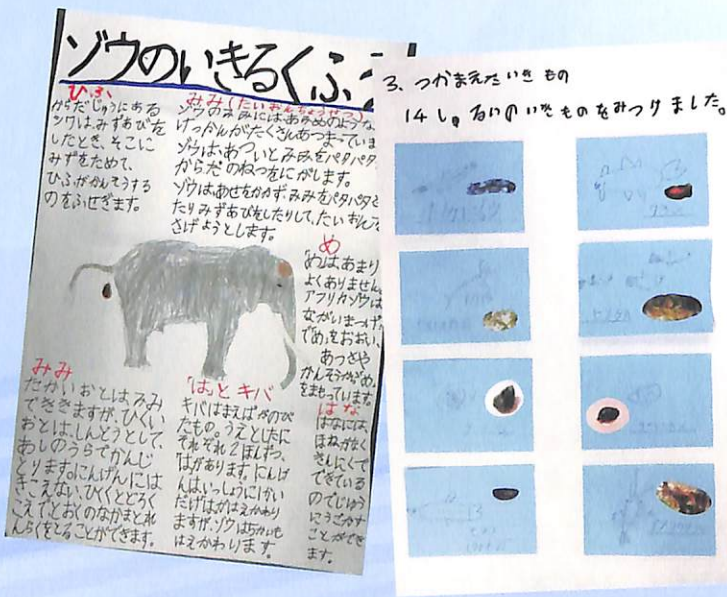 ゾウのいきるくふう
ひふ
からだじゅうにある
シワは、みずあびを
したとき、そこに
みずをためて、
ひふがかんそうする
のをふせぎます。
みみ(たいおんちょうせつ)
ゾウのみみには、あみめのような、
けっかんがたくさんあつまっていま
ゾウは、あついとみみをパタパタ
からだのねつをにがします。
ゾウはあせをかかず、みみをパタパタと
たりみずあびをしたりして、たいおんを
さげようとします。
め
「め」はあまり
よくありません。
アフリカゾウは
ながいまつげ
で「め」をおおい、
あつさや
かんそうから「め」
をまもっています。
みみ
たかいおとはみみ
でききますが、ひくい
おとは、しんどうとして、
あしのうらでかんじ
とります。にんげんには
きこえない、ひくくとどろく
こえでとおくのなかまとれ
んらくをとることができます。
「は」とキバ
キバはまえばがのび
たもの。うえとしたに
それぞれ2ほんずつ、
「は」があります。にんげ
んはいっしょうに1かい
だけはがはえかわり
ますが、ゾウは5かいも
はえかわります。
はな
はなには、
ほねがなく
きんにくで
できている
のでじゆう
にうごかす
ことができ
ます。
3、つかまえたいきもの
14しゅるいのいきものをみつけました。